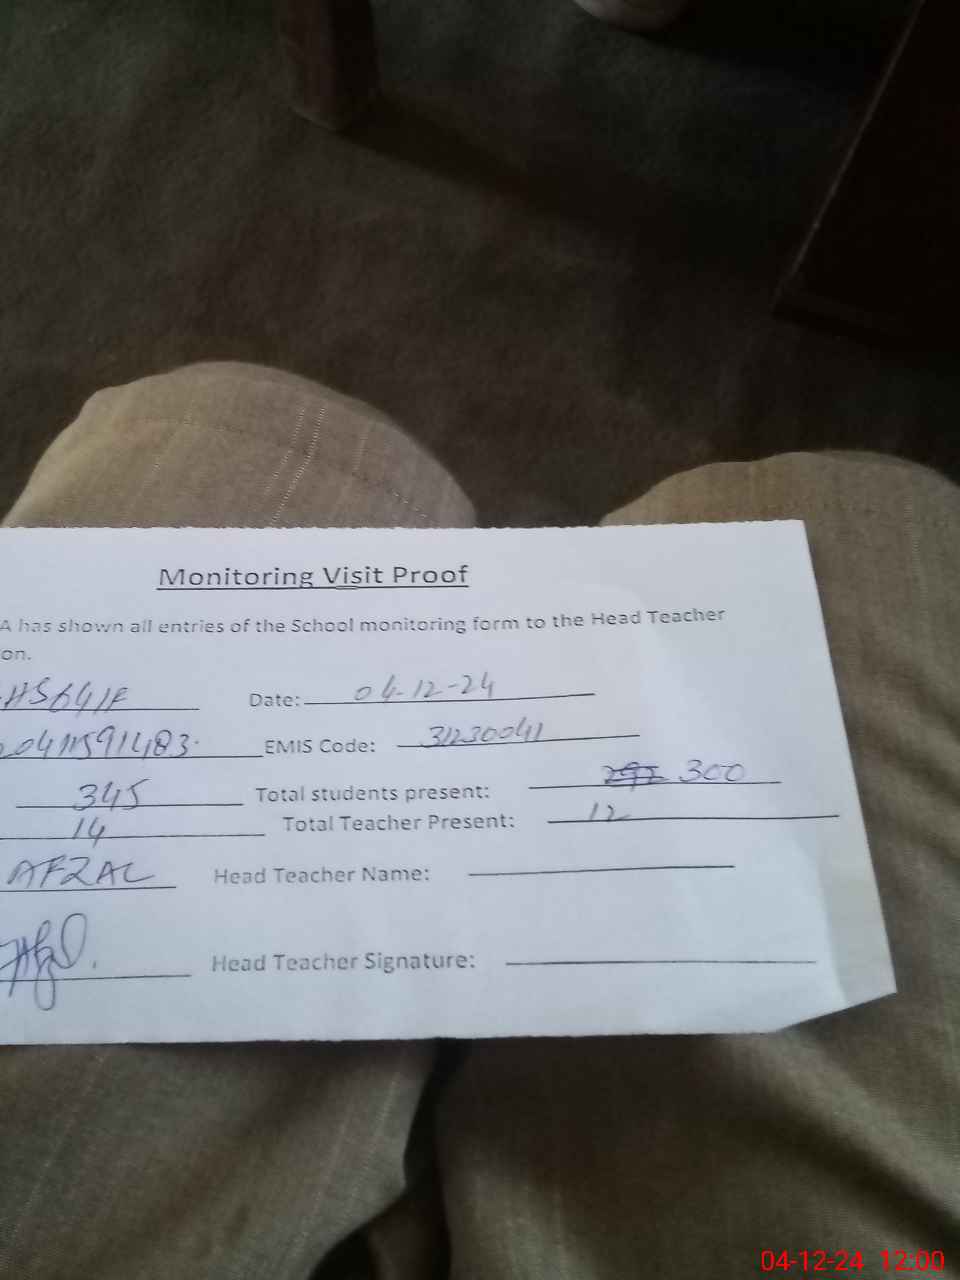 Monitoring Visit Proof
A has shown all entries of the School monitoring form to the Head Teacher
on.
HS641F Date: 04-12-24
0411591483. EMIS Code: 31230041
345 Total students present: 300
14 Total Teacher Present: 12
AFZAL Head Teacher Name:
Head Teacher Signature:
04-12-24 12:00